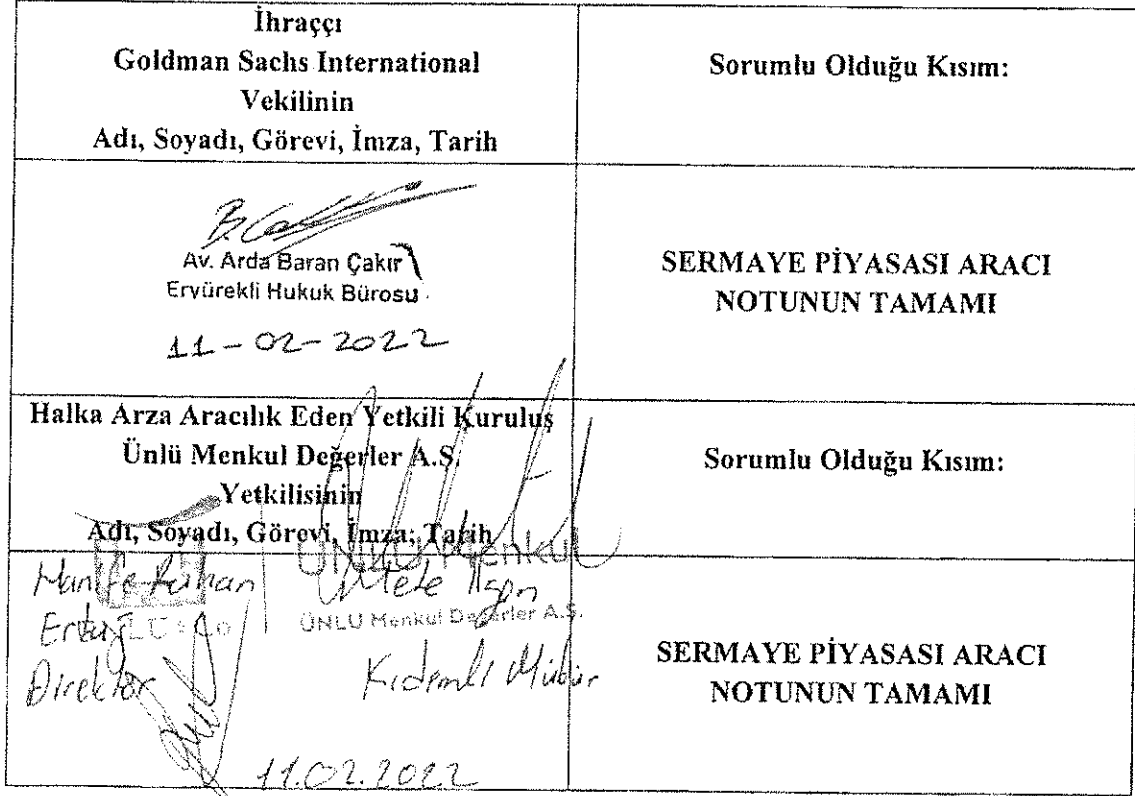 İhraççı
Goldman Sachs International
Vekilinin
Adı, Soyadı, Görevi, İmza, Tarih
Sorumlu Olduğu Kısım:
Av. Arda Baran Çakır
Eryürekli Hukuk Bürosu
11-02-2022
SERMAYE PİYASASI ARACI
NOTUNUN TAMAMI
Halka Arza Aracılık Eden Yetkili Kuruluş
Ünlü Menkul Değerler A.Ş.
Yetkilisinin
Adı, Soyadı, Görevi, İmza, Tarih
Sorumlu Olduğu Kısım:
ÜNLÜ Menkul
Mete
ÜNLÜ Menkul Değerler A.Ş.
Direktör
Kıdemli Müdür
11.02.2022
SERMAYE PİYASASI ARACI
NOTUNUN TAMAMI